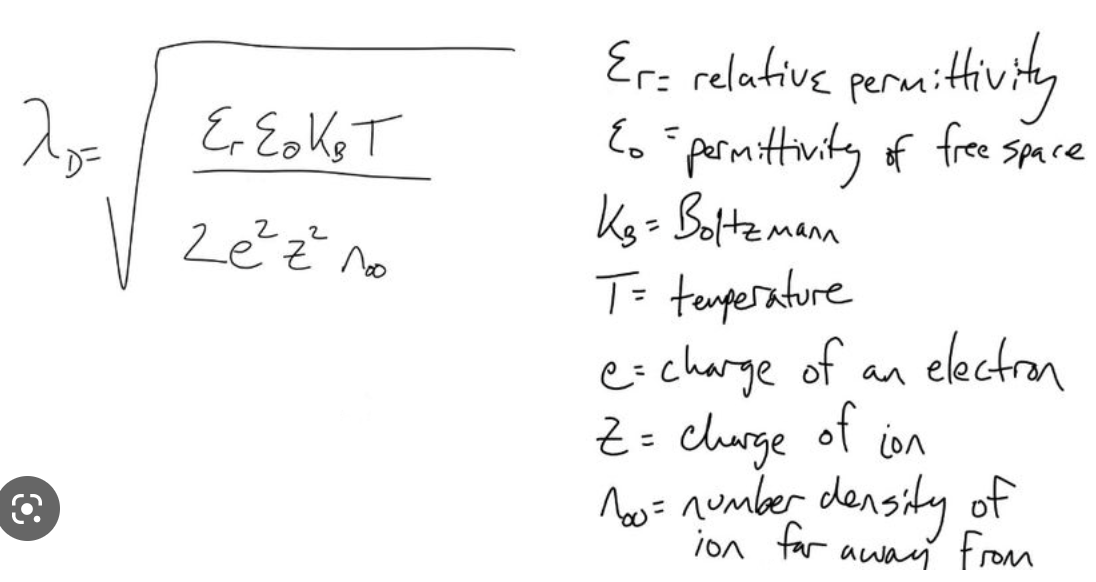 λ_D = √(ε_r ε_0 K_B T / 2e² z² n_∞)
ε_r = relative permittivity
ε_0 = permittivity of free space
K_B = Boltzmann
T = temperature
e = charge of an electron
z = charge of ion
n_∞ = number density of
ion far away from